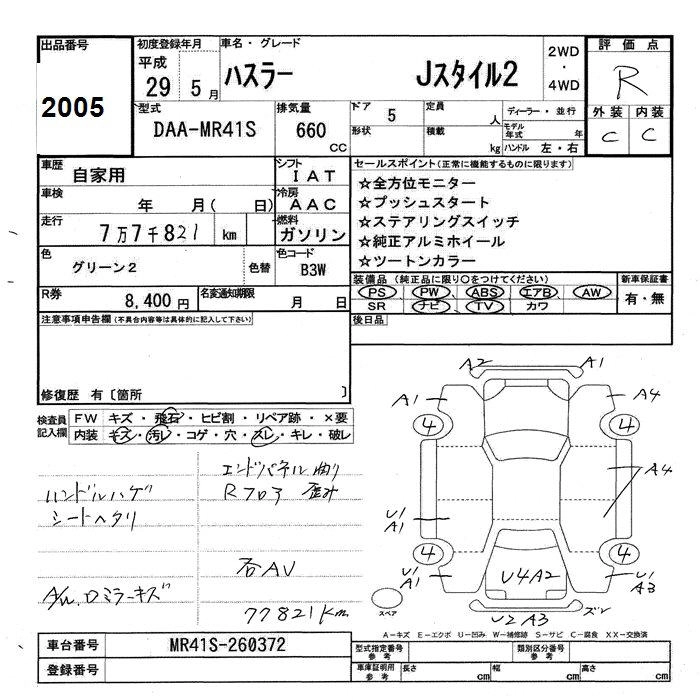 出品番号
2005
初度登録年月
平成
29 5月
車名・グレード
ハスラー Jスタイル2
2WD
・
4WD
評価点
R
外装 内装
C C
型式
DAA-MR41S
排気量
660
CC
ドア 5
形状
定員 人
積載 kg
ディーラー・並行
モデル年式 年
ハンドル 左・右
車歴
自家用
シフト
IAT
車検
年 月( 日)
冷房
AAC
走行
7万7千821 km
燃料
ガソリン
色
グリーン2
色替
色コード
B3W
R券
8,400円
名変通知期限
月 日
セールスポイント(正常に機能するものに限ります)
☆全方位モニター
☆プッシュスタート
☆ステアリングスイッチ
☆純正アルミホイール
☆ツートンカラー
装備品 (純正品に限り○をつけてください)
PS PW ABS エアB AW
SR ナビ TV カワ
新車保証書
有・無
後日品
注意事項申告欄(不具合内容等は具体的に記入して下さい)
修復歴 有〔箇所 〕
検査員
記入欄
FW キズ・飛石・ヒビ割・リペア跡・×要
内装 キズ・汚レ・コゲ・穴・スレ・キレ・破レ
エンドパネル曲り
Rフロア 歪み
ハンドルハゲ
シートヘタリ
社AV
A/W、ロミラーキズ
77821Km
A2 A1
A1 A4
4 4
A4
U1
A1
4 4
U1
A1
U4A2
U1
A3
スペア
U2 A3 ズレ
A−キズ E−エクボ U−凹み W−補修跡 S−サビ C−腐食 XX−交換済
車台番号
MR41S-260372
登録番号
型式指定番号
参考
類別区分番号
参考
車庫証明用
参考
長さ cm
幅 cm
高さ cm